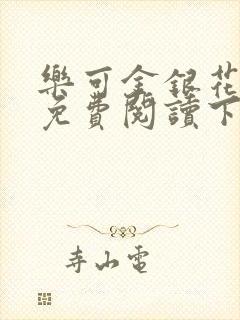 樂可金銀花
免費閱讀下
寺山電